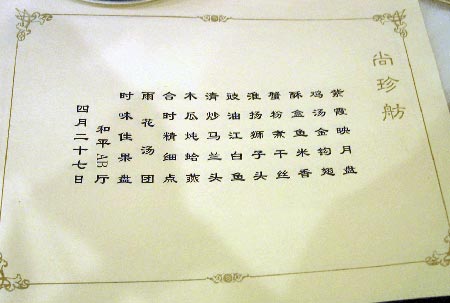 尚珍舫
紫霞映月盘
鸡汤金钩翅
酥盒鱼米香
蟹粉煮干丝
淮扬狮子头
豉油江白鱼
清炒马兰头
木瓜炖蛤燕
合时精细点
雨花汤团
时味佳果盘
和平AB厅
四月二十七日